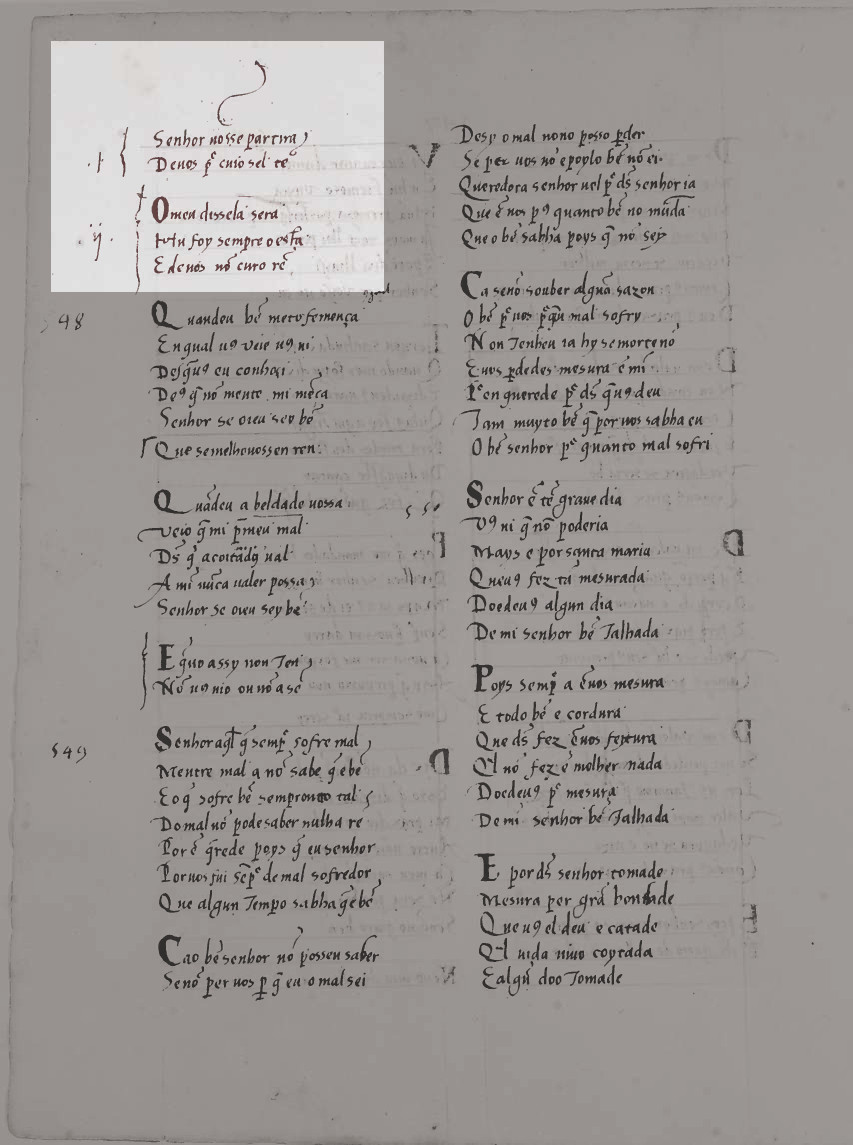 Senhor nosse partira
Deuos pᵉ cuio sel tē
.t
Omeu dissela sera
ij.
Miu foy sempre o esta
E deuos nō curo rē
548
Quandeu bē meto femença
ogual
En gual uꝯ ueio uꝯ ui
Desq̄uꝯ eu conhoçi
Deꝯ q̄ nō mente mi mēça
Senhor se oieu sey bē
Que semelhouossen ren
Quādeu a beldade uossa
Veio q̄ mi pᵉmeu mal
Ds̄ q̄ a coitādꝯ ual
A mi nūca ualer possa
Senhor se oieu sey bē
E q̄uo assy non Ten
Nō uꝯ uio ou nō a sē
549
Senhor aq̄l q̄ sempᵉ sofre mal
Mentre mal a nō sabe q̄ e bē
E o q̄ sofre bē sempro uto tal
Do mal nō pode saber nulha re
Por ē q̄rede poys q̄ eu senhor
Por uos fui sēpᵉ de mal sofredor
Que algun Tempo sabha q̄ e bē
Ca o bē senhor nō posseu saber
Senō per uos ꝑ q̄ eu o mal sei
Desy o mal nono posso ꝑder
Se per uos nō e poylo bē nō ei
Queredora senhor uel pᵉ ds̄ senhor ia
Que ē uos pꝯ quanto bē no mūda
Que o bē sabha poys q̄ nō sey
Ca senō souber algūa sazon
O bē pᵉ uos pᵉ q̄ȳ mal sofry
Non Tenheu ia hy se morte nō
E uos ꝑdedes mesura ē mī
Pᵉ en querede pᵉ ds̄ q̄uꝯ deu
Tam muyto bē q̄ por uos sabha eu
O bē senhor pᵉ quanto mal sofri
551
Senhor ē tā graue dia
Vꝯ ui q̄ nō poderia
Mays e por santa maria
Que uꝯ fez tā mesurada
Doedeuꝯ algun dia
De mi senhor bē Talhada
Poys sempᵉ a ē uos mesura
E todo bē e cordura
Que ds̄ fez ē uos feytura
Q̄l nō fez ē molher nada
Doedeuꝯ pᵉ mesura
De mi senhor bē Talhada
E por ds̄ senhor tomade
Mesura per grā bondade
Que uꝯ el deu e catade
Q̄l uida uiuo coytada
E algū doo Tomade